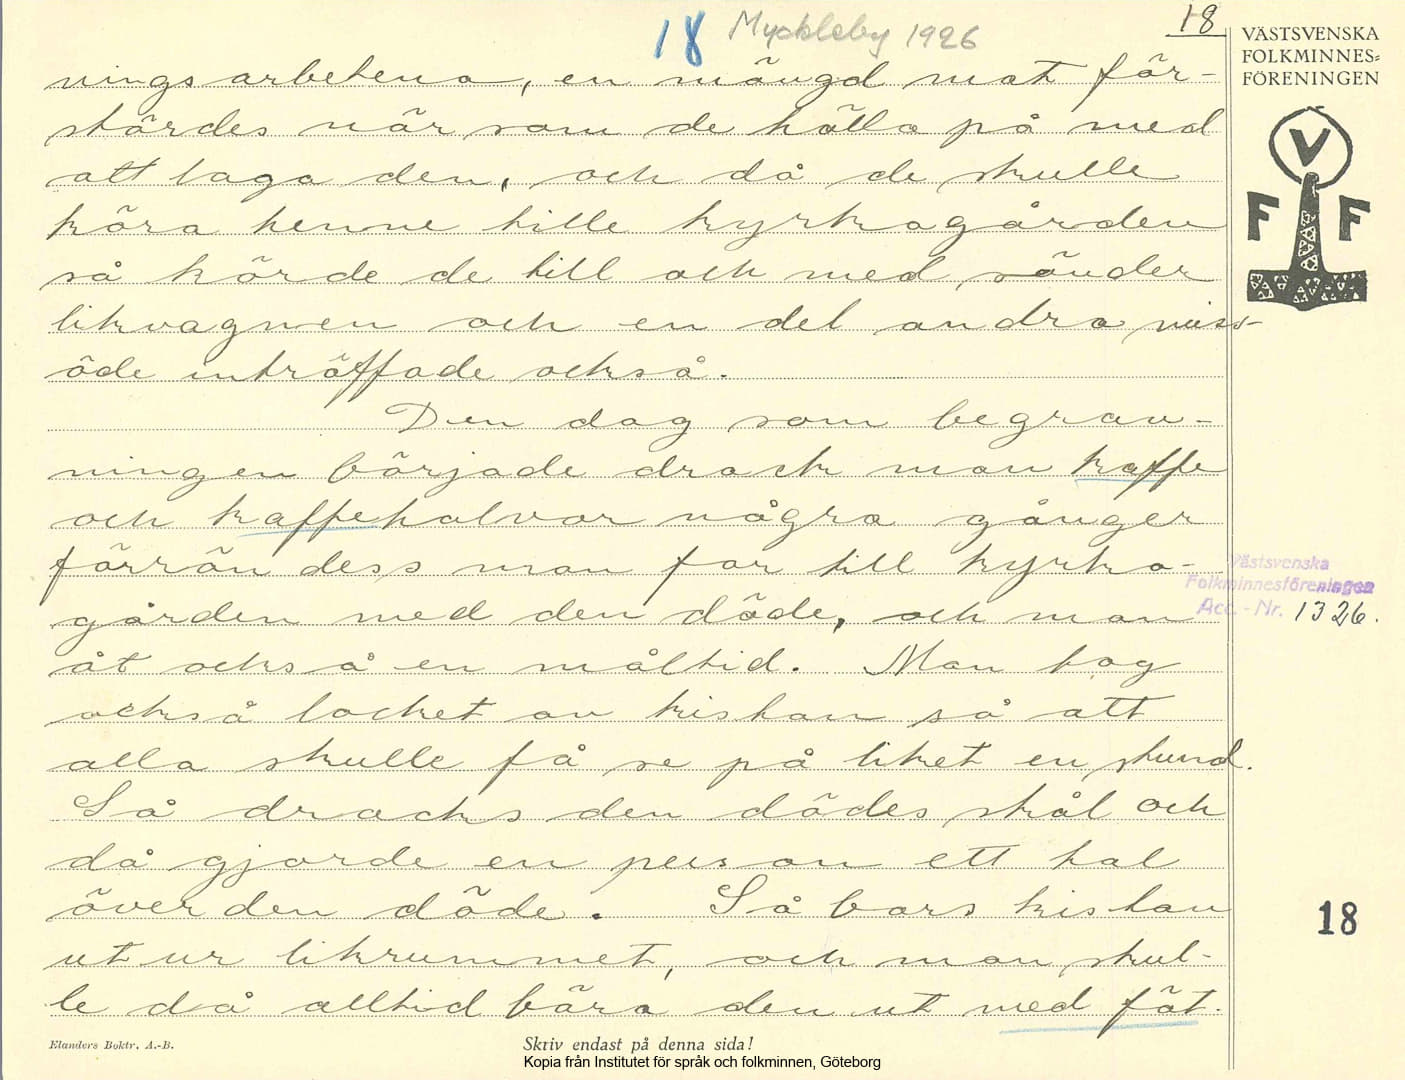 18 Myckleby 1926
18
VÄSTSVENSKA
FOLKMINNES=
FÖRENINGEN
V
F F
ningsarbetena, en mängd mat för-
stördes när som de hålla på med
att laga den, och då de skulle
köra henne tille kyrkagården
så körde de till och med sönder
likvagnen och en del andra miss-
öde inträffade också.
Den dag som begrav-
ningen började drack man kaffe
och kaffehalvor några gånger
förrän dess man for till kyrka-
gården med den döde, och man
åt också en måltid. Man tog
också locket av kistan så att
alla skulle få se på liket en stund.
Så dracks den dödes skål och
då gjorde en person ett tal
över den döde. Så bars kistan
ut ur likrummet, och man skul-
le då alltid bära den ut med föt-
Västsvenska
Folkminnesföreningen
Acc. - Nr. 1326.
18
Elanders Boktr. A.-B.
Skriv endast på denna sida!
Kopia från Institutet för språk och folkminnen, Göteborg